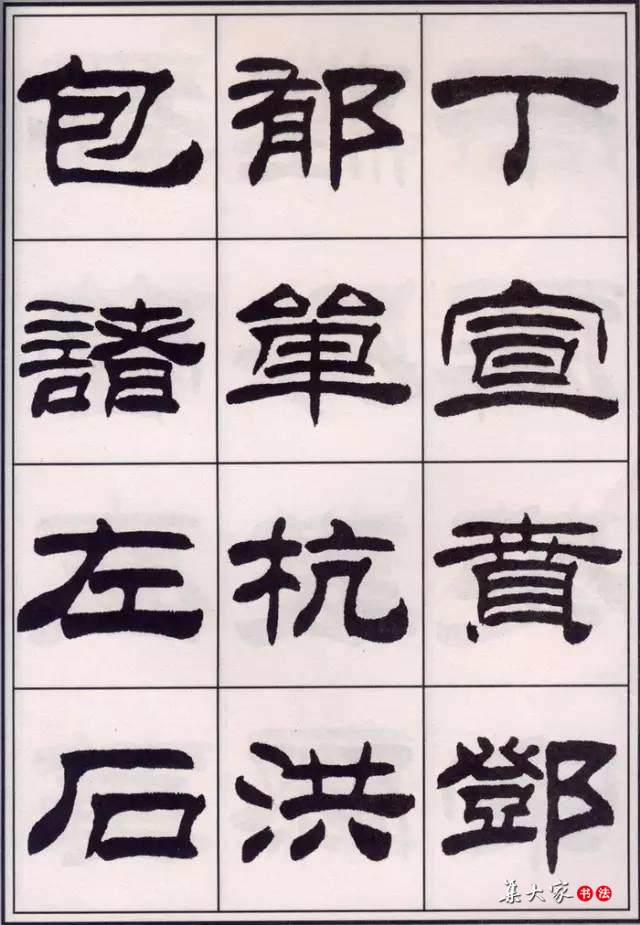 丁宣賁鄧
郁單杭洪
包諸左石
集大家书法